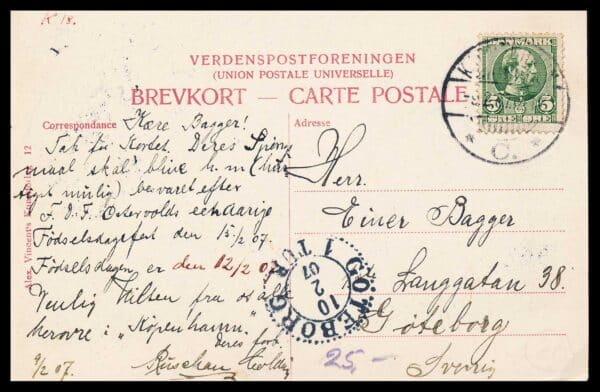 K 18.
VERDENSPOSTFORENINGEN
(UNION POSTALE UNIVERSELLE)
BREVKORT — CARTE POSTALE
DANMARK
5 5
ØRE ØRE
C.
Correspondance
Kære Bagger!
Tak for Kortet. Deres
maal skal blive h. m.
mulig) besvaret efter
F. D. F. Østervolds eendarige
Fødselsdagsfest den 15/2 07.
Fødselsdagen er den 12/2 07
Venlig Hilsen fra os alle
herovre i „Köpenhamn".
Deres forb.
9/2 07.
Adresse
Herr.
Einer Bagger
Langgatan 38.
Göteborg
Sverrig
GÖTEBORG
1 TUR
10
2
07
25,-
Alex. Vincents 12